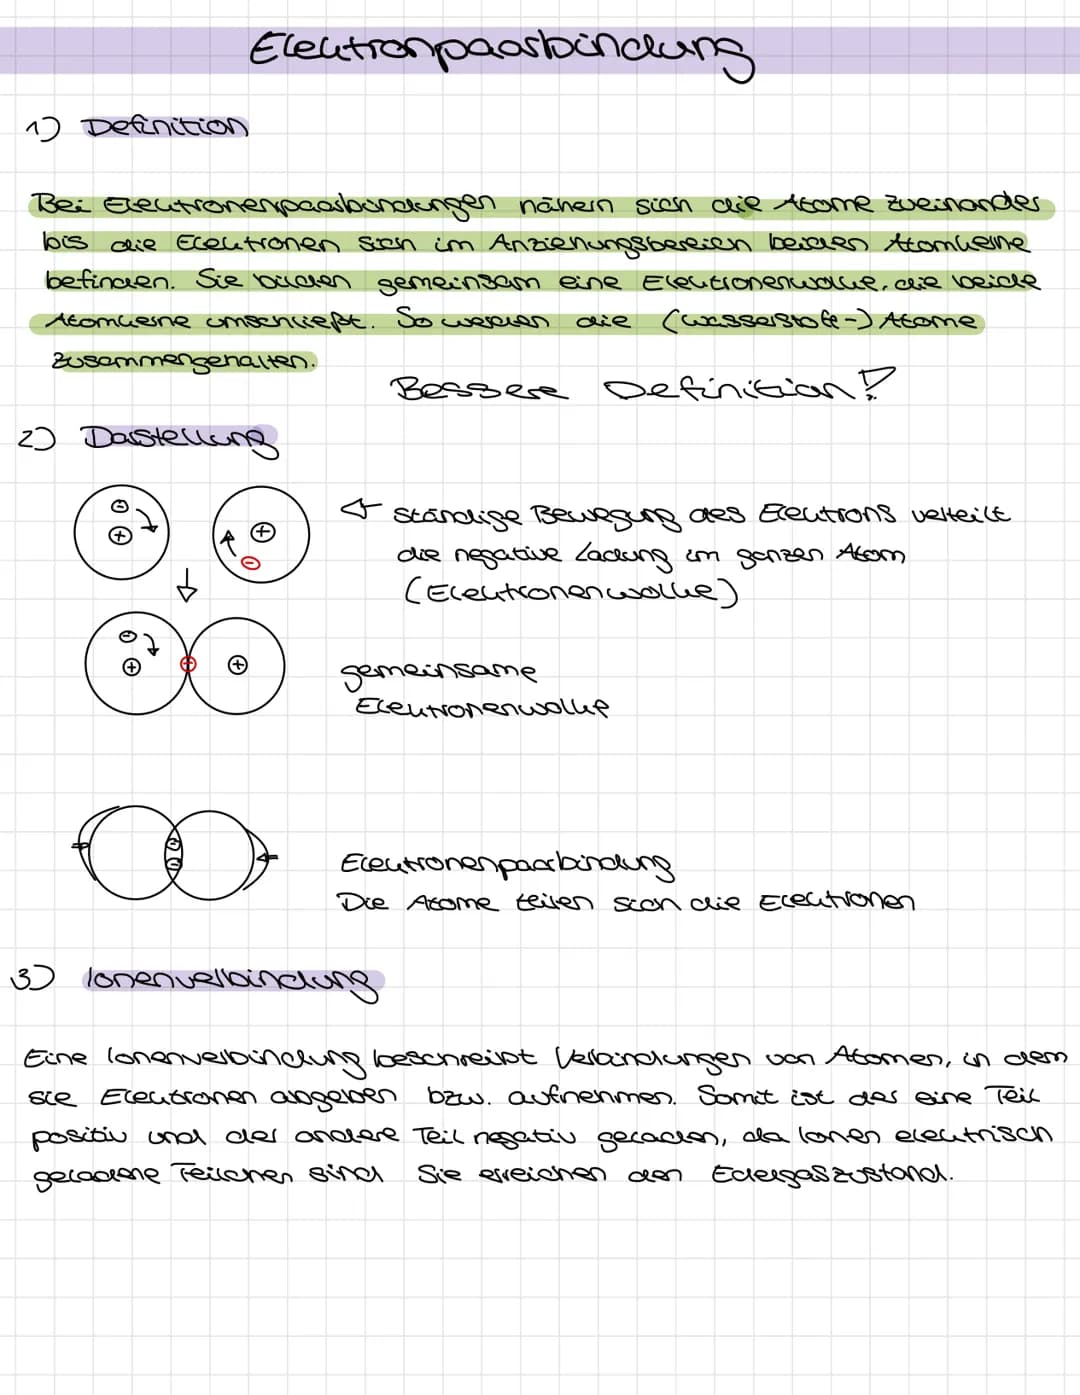 Elektronpaarbindung
1) Definition
Bei Elektronenpaarbindungen nähern sich die Atome zueinander
bis die Elektronen sich im Anziehungsbereich beiden Atomkerne
befinden. Sie bilden gemeinsam eine Elektronenwolke, die beide
Atomkerne umschließt. So werden die (Wasserstoff-) Atome
zusammengehalten.
Bessere Definition!?
2) Darstellung
← ständige Bewegung des Elektrons verteilt
die negative Ladung im ganzen Atom
(Elektronenwolke)
gemeinsame
Elektronenwolke
Elektronenpaarbindung
Die Atome teilen sich die Elektronen
3) Ionenverbindung
Eine Ionenverbindung beschreibt Verbindungen von Atomen, in dem
sie Elektronen abgeben bzw. aufnehmen. Somit ist der eine Teil
positiv und der andere Teil negativ geladen, da Ionen elektrisch
geladene Teilchen sind Sie erreichen den Edelgaszustand.